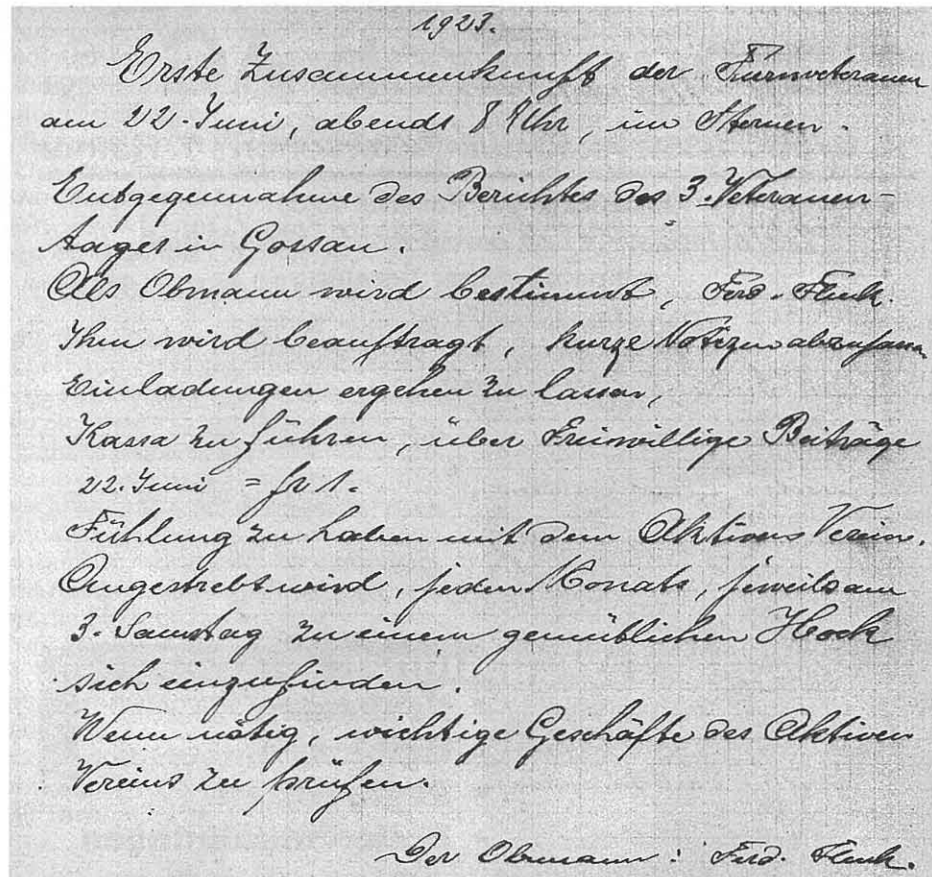 1923.
Erste Zusammenkunft der Turnveteranen
am 22. Juni, abends 8 Uhr, im Sternen.
Entgegennahme des Berichtes des 3. Veteranen-
tages in Gossau.
Als Obmann wird bestimmt, Ferd. Flück.
Ihm wird beauftragt, kurze Notizen abzufassen
Einladungen ergehen zu lassen,
Kassa zu führen, über Freiwillige Beiträge
22. Juni = fr 1.
Fühlung zu haben mit dem Aktions Verein.
Angestrebt wird, jeden Monats, jeweils am
3. Samstag zu einem gemütlichen Hock
sich einzufinden.
Wenn nötig, wichtige Geschäfte des Aktiven
Vereins zu prüfen.
Der Obmann: Ferd. Flück.